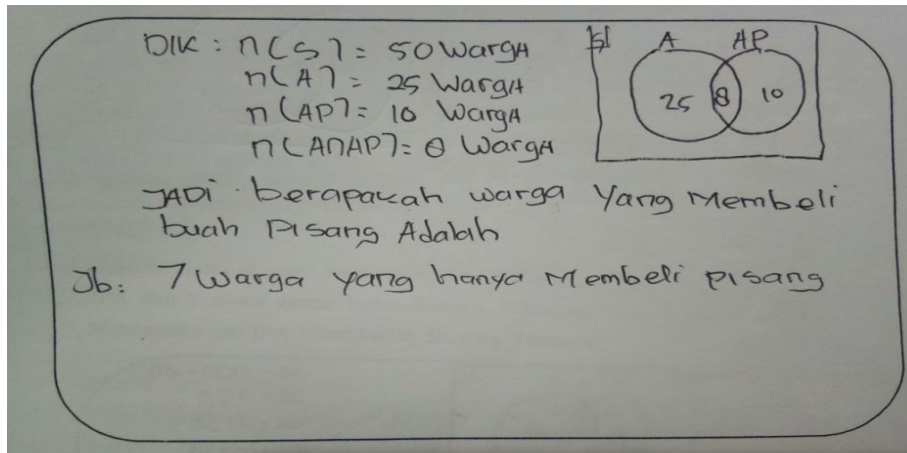 DIK : n(S) = 50 Warga
n(A) = 25 Warga
n(AP) = 10 Warga
n(A∩AP) = 8 Warga
S A AP
25 8 10
JADi berapakah warga Yang Membeli
buah Pisang Adalah
Jb: 7 Warga yang hanya Membeli pisang